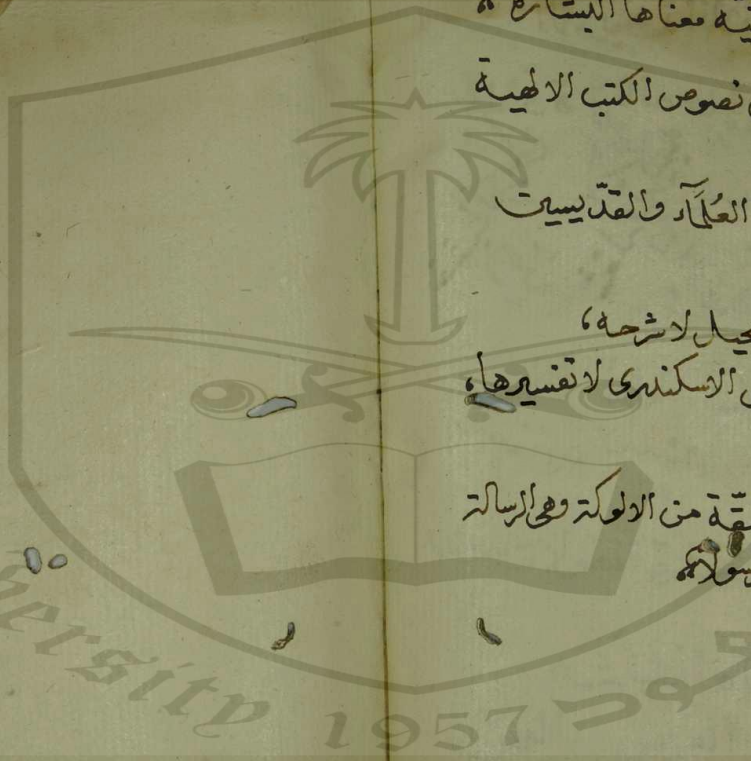 معناها البشارة
نصوص الكتب الالهية
العُلَمَآء والقدّيسين
لا شرحه،
الاسكندرى لا تفسيرها،
من الالوكة وهى الرسالة
ersity 1957